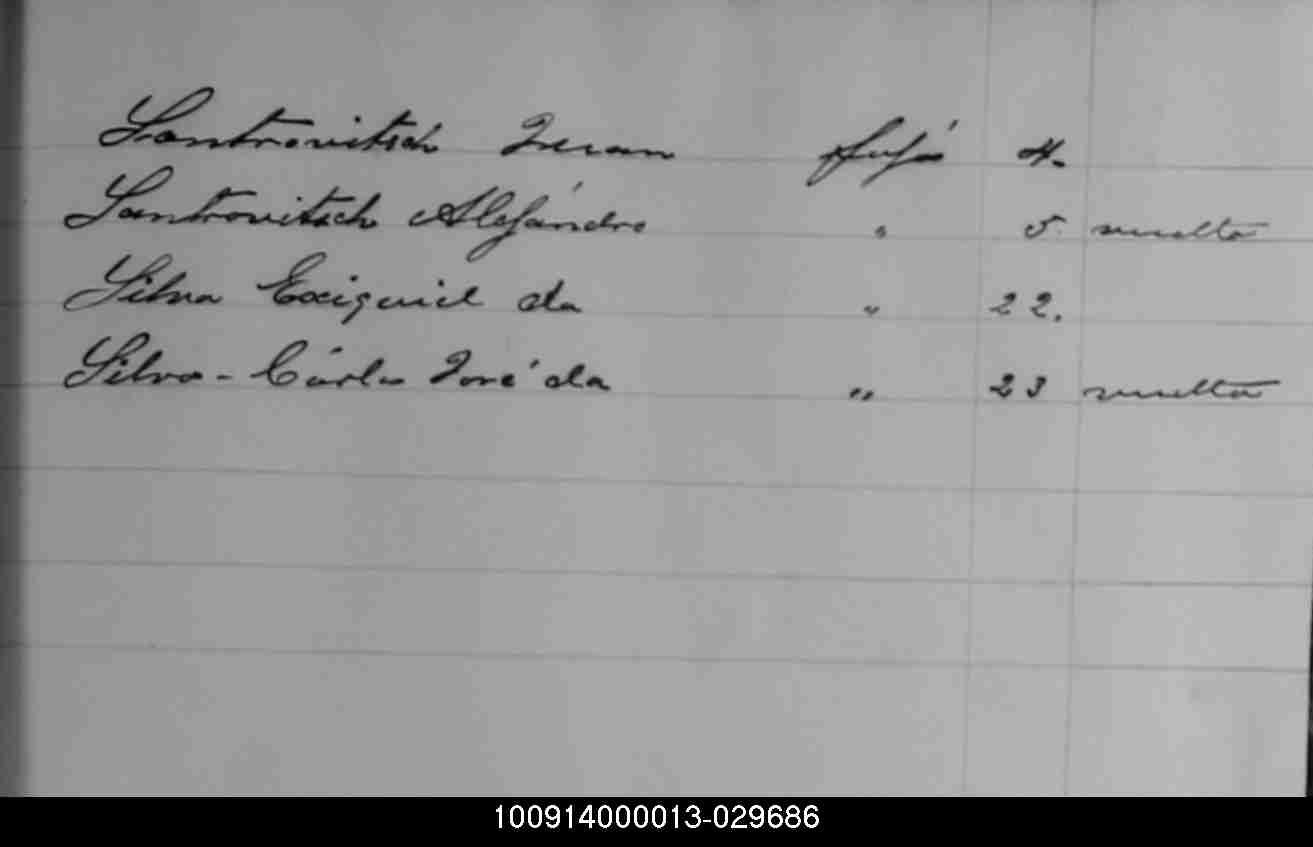 Santrovitsch Juan foja 4.
Santrovitsch Alejándro " 5 vuelta
Silva Exiquiel da " 22.
Silva - Cárlos José da " 23 vuelta
100914000013-029686